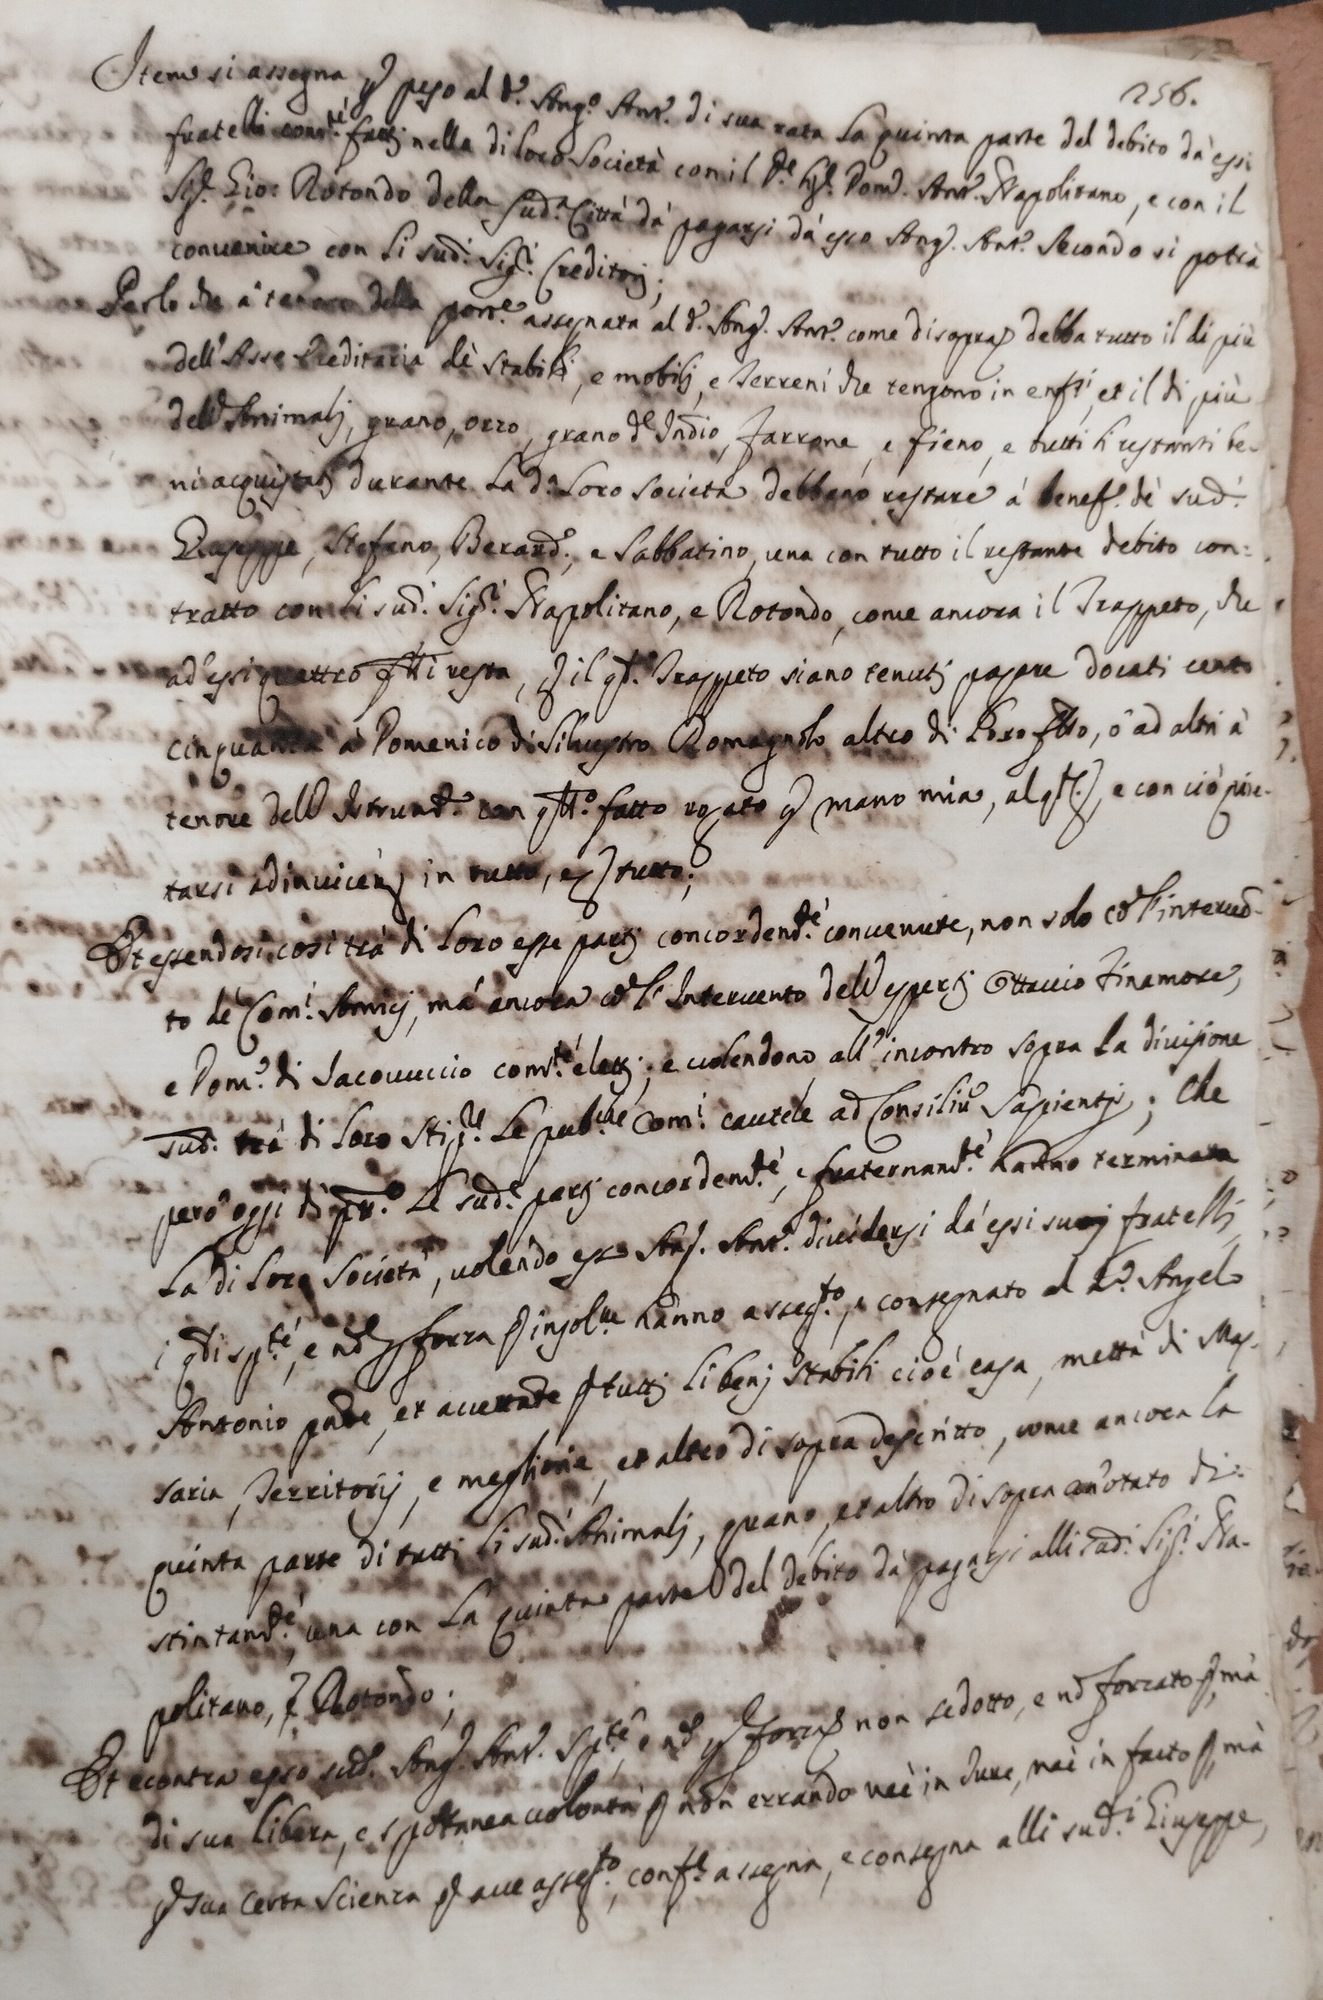 256.
Item si assegna p peso al d.º Ang.º Ant.º di sua rata la quinta parte del debito dà essi
fratelli com.te fatti nella di loro Società con il Sig.r Dom.º Ant.º Napolitano, e con il
Sig.r Gio: Rotondo della sud.ª Città dà pagarsi dà esso Ang.º Ant.º secondo si potrà
convenire con li sud.i Sig.ri Creditori;
Per lo che à tenore della port.e assegnata al d.º Ang.º Ant.º come di sopra debba tutto il di più
dell'Asse Ereditaria dè stabili, e mobili, e Terreni che tengono in enf.i, et il di più
dell'Animali, grano, orzo, grano d'Indio, farrone, e fieno, e tutti li restanti be-
ni acquistati durante la d.ª loro società debbano restare à benef.º dè sud.i
Giuseppe, Stefano, Berard.º, e Sabbatino, una con tutto il restante debito con=
tratto con li sud.i Sig.ri Napolitano, e Rotondo, come ancora il Trappeto, che
ad essi quattro f̃lli resta, p il q.le Trappeto siano tenuti pagare docati cento
cinquanta à Domenico di Silvestro Romagnolo altro di loro f̃llo, ò ad altri à
tenore dell'Istrum.to con q̃llo fatto rogato p mano mia, al q.le, e con ciò quie-
tarsi adinvicem in tutto, e p tutto;
Et essendosi così trà di loro esse parti concordem.te convenute, non solo cõ l'interven-
to dè Com.i Amici, mà ancora cõ l'Intervento dell'esperti Ottavio Finamore,
e Dom.º di Iacovuccio com.te eletti; e volendono all'incontro sopra la divisione
sud.ª trà di loro stip.re le pub.che com.i cautele ad Consiliũ Sapientis; Che
però oggi di pr.º le sud.e parti concordem.te, e fraternam.te hanno terminata
la di loro Società, volendo esso Ang.º Ant.º dividersi dà essi suoi fratelli,
i q̃li sp.te, e nõ p forza p insol.m hanno asseg.to, e consegnato al d.º Angelo
Antonio pñte, et accettante p tutti li beni stabili cioè casa, mettà di Mas-
saria, Territorij, e megliorie, et altro di sopra descritto, come ancora la
quinta parte di tutti li sud.i Animali, grano, et altro di sopra añotato di-
stintam.te, una con la quinta parte del debito dà pagarsi alli sud.i Sig.ri Na-
politano, e Rotondo;
Et econtra esso sud.º Ang.º Ant.º sp.te, e nõ p forza non sedotto, e nõ forzato p, mà
di sua libera, e spontanea volontà p non errando nec in Jure, nec in facto p, mà
p sua certa scienza p ave asseg.to, conf.e assegna, e consegna alli sud.i Giuseppe,